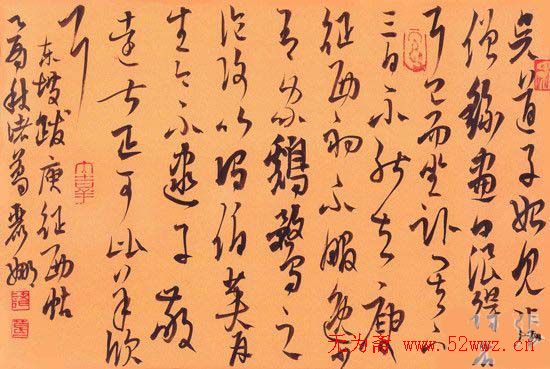 吳道子始見張
僧繇畫曰浪得名
耳已而坐卧其下
三日不能去庾
征西初不服逸少
有家鷄鶩之
論後以謂伯英再
生今不逮子敬
遠甚正可比羊欣
耳
東坡跋庾征西帖
乙酉秋 葛麗娜
无为斋 www.52wwz.cn